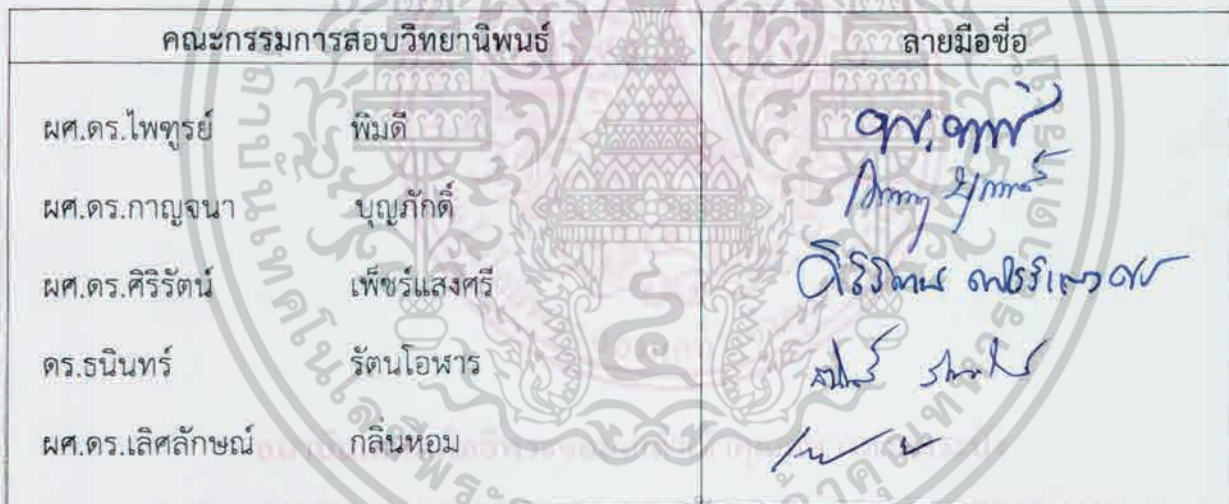 คณะกรรมการสอบวิทยานิพนธ์ ลายมือชื่อ
ผศ.ดร.ไพฑูรย์ พิมดี
ผศ.ดร.กาญจนา บุญภักดิ์
ผศ.ดร.ศิริรัตน์ เพ็ชร์แสงศรี
ดร.ธนินทร์ รัตนโอฬาร
ผศ.ดร.เลิศลักษณ์ กลิ่นหอม